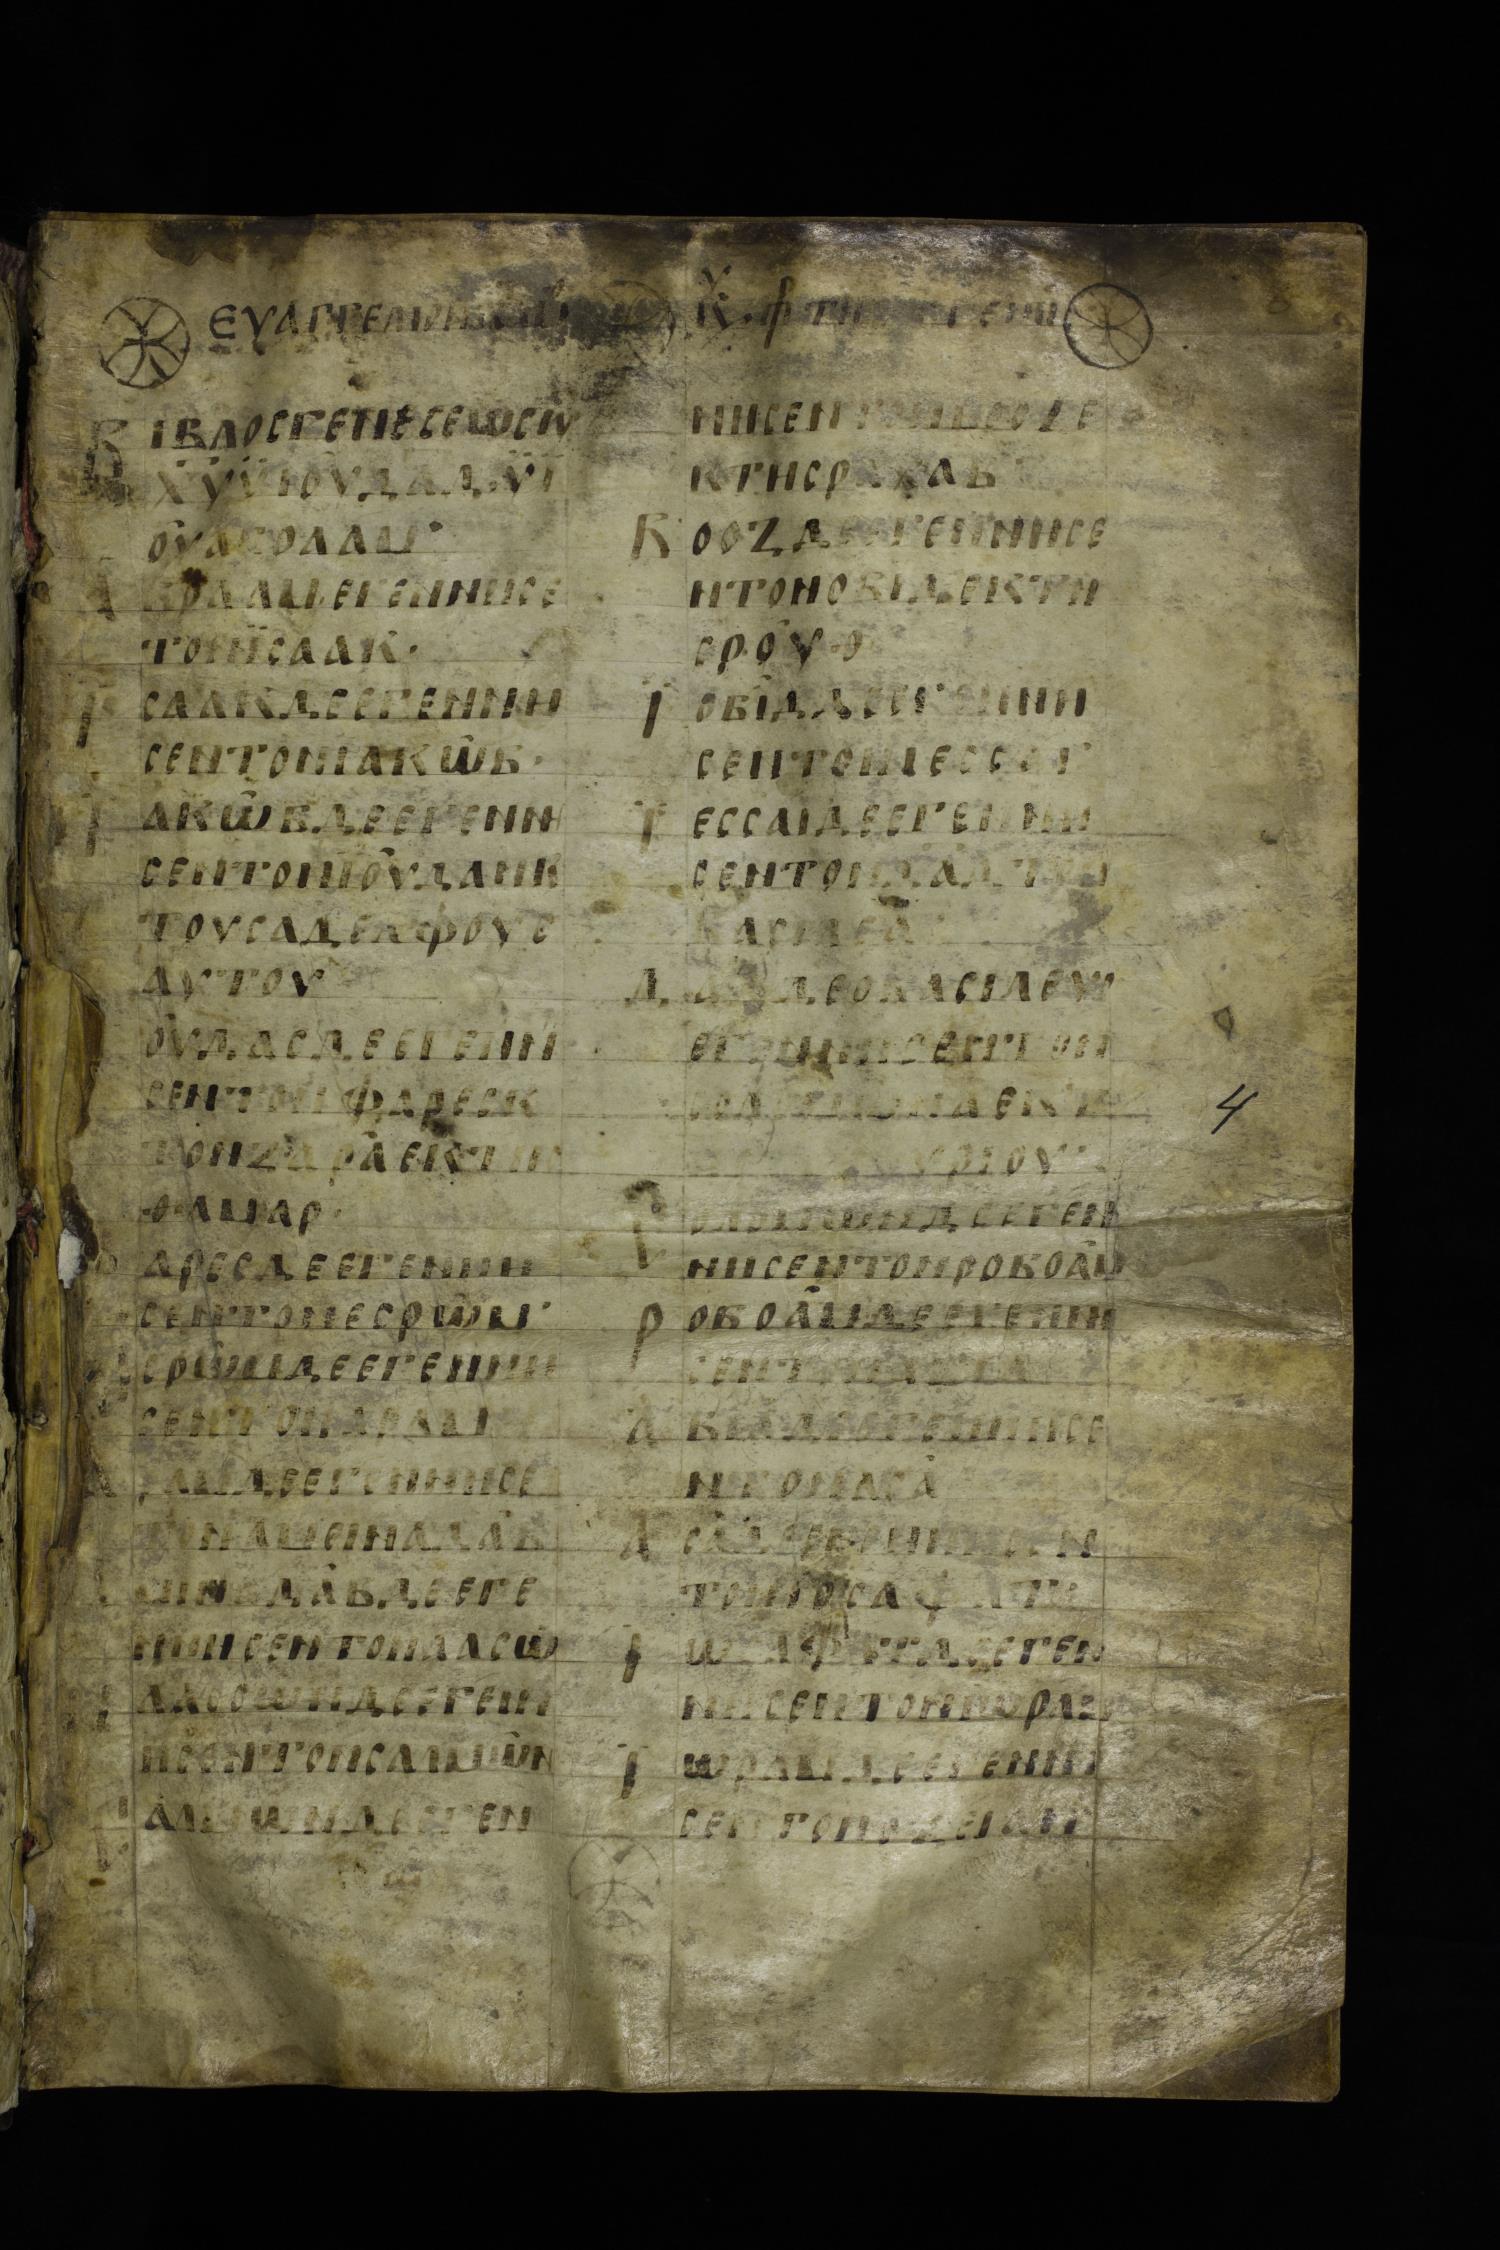 ΕΥΑΓΓΕΛΙΟΝ
ΒΙΒΛΟCΓΕΝΕCΕΩCΙΥ
ΧΥΥΙΟΥΔΑΔΥΙ
ΟΥΑΒΡΑΑΜ
ΑΒΡΑΑΜΕΓΕΝΝΗCΕ
ΤΟΝΙCΑΑΚ·
ΙCΑΑΚΔΕΕΓΕΝΝΗ
CΕΝΤΟΝΙΑΚΩΒ·
ΙΑΚΩΒΔΕΕΓΕΝΝΗ
CΕΝΤΟΝΙΟΥΔΑΝΚ
ΤΟΥCΑΔΕΛΦΟΥC
ΑΥΤΟΥ
ΟΥΔΑCΔΕΕΓΕΝΝΗ
CΕΝΤΟΝΦΑΡΕCΚ
ΤΟΝΖΑΡΑΕΚΤΗC
ΘΑΜΑΡ·
ΑΡΕCΔΕΕΓΕΝΝΗ
CΕΝΤΟΝΕCΡΩΜ·
CΡΩΜΔΕΕΓΕΝΝΗ
CΕΝΤΟΝΑΡΑΜ
ΑΡΑΜΔΕΕΓΕΝΝΗCΕ
ΤΟΝΑΜΕΙΝΑΔΑΒ
ΜΙΝΑΔΑΒΔΕΕΓΕ
ΝΝΗCΕΝΤΟΝΑΑCΩ
ΑΑCΩΝΔΕΕΓΕΝΝ
ΗCΕΝΤΟΝCΑΛΜΩΝ
ΑΛΜΩΝΔΕΕΓΕΝ
ΝΗCΕΝΤΟΝΒΟΟΖΕ
ΚΤΗCΡΑΧΑΒ
ΒΟΟΖΔΕΕΓΕΝΝΗCΕ
ΝΤΟΝΟΒΙΔΕΚΤΗ
CΡΟΥΘ
ΙΟΒΙΔΔΕΕΓΕΝΝΗ
CΕΝΤΟΝΙΕCCΑΙ
ΙΕCCΑΙΔΕΕΓΕΝΝΗ
CΕΝΤΟΝΔΑΔΤΟΝ
ΒΑCΙΛΕΑ
ΔΑΔΔΕΟΒΑCΙΛΕΥC
ΕΓΕΝΝΗCΕΝΤΟΝ
ΟΥΡΙΟΥ·
ΝΗCΕΝΤΟΝΡΟΒΟΑΜ
ΡΟΒΟΑΜΔΕΕΓΕΝΝΗ
CΕΝΤΟΝΑΒΙΑ
ΑΒΙΑΔΕΕΓΕΝΝΗCΕ
ΝΤΟΝΑCΑ
ΑCΑΔΕΕΓΕΝΝΗCΕΝ
ΤΟΝΙΟCΑΦΑΤ
ΙΩCΑΦΑΤΔΕΕΓΕΝ
ΝΗCΕΝΤΟΝΙΩΡΑΜ
ΙΩΡΑΜΔΕΕΓΕΝΝΗ
CΕΝΤΟΝΟΖΕΙΑΝ
4